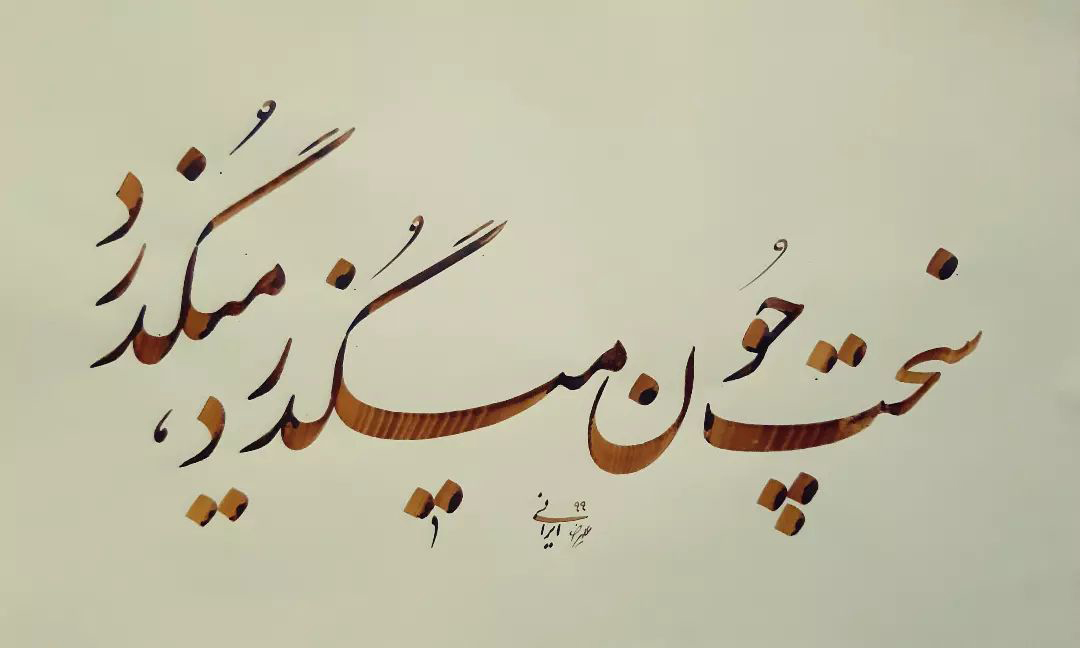 سخت چُون میگُذرد، میگُذرد
علیرضا ایرانی ۹۹